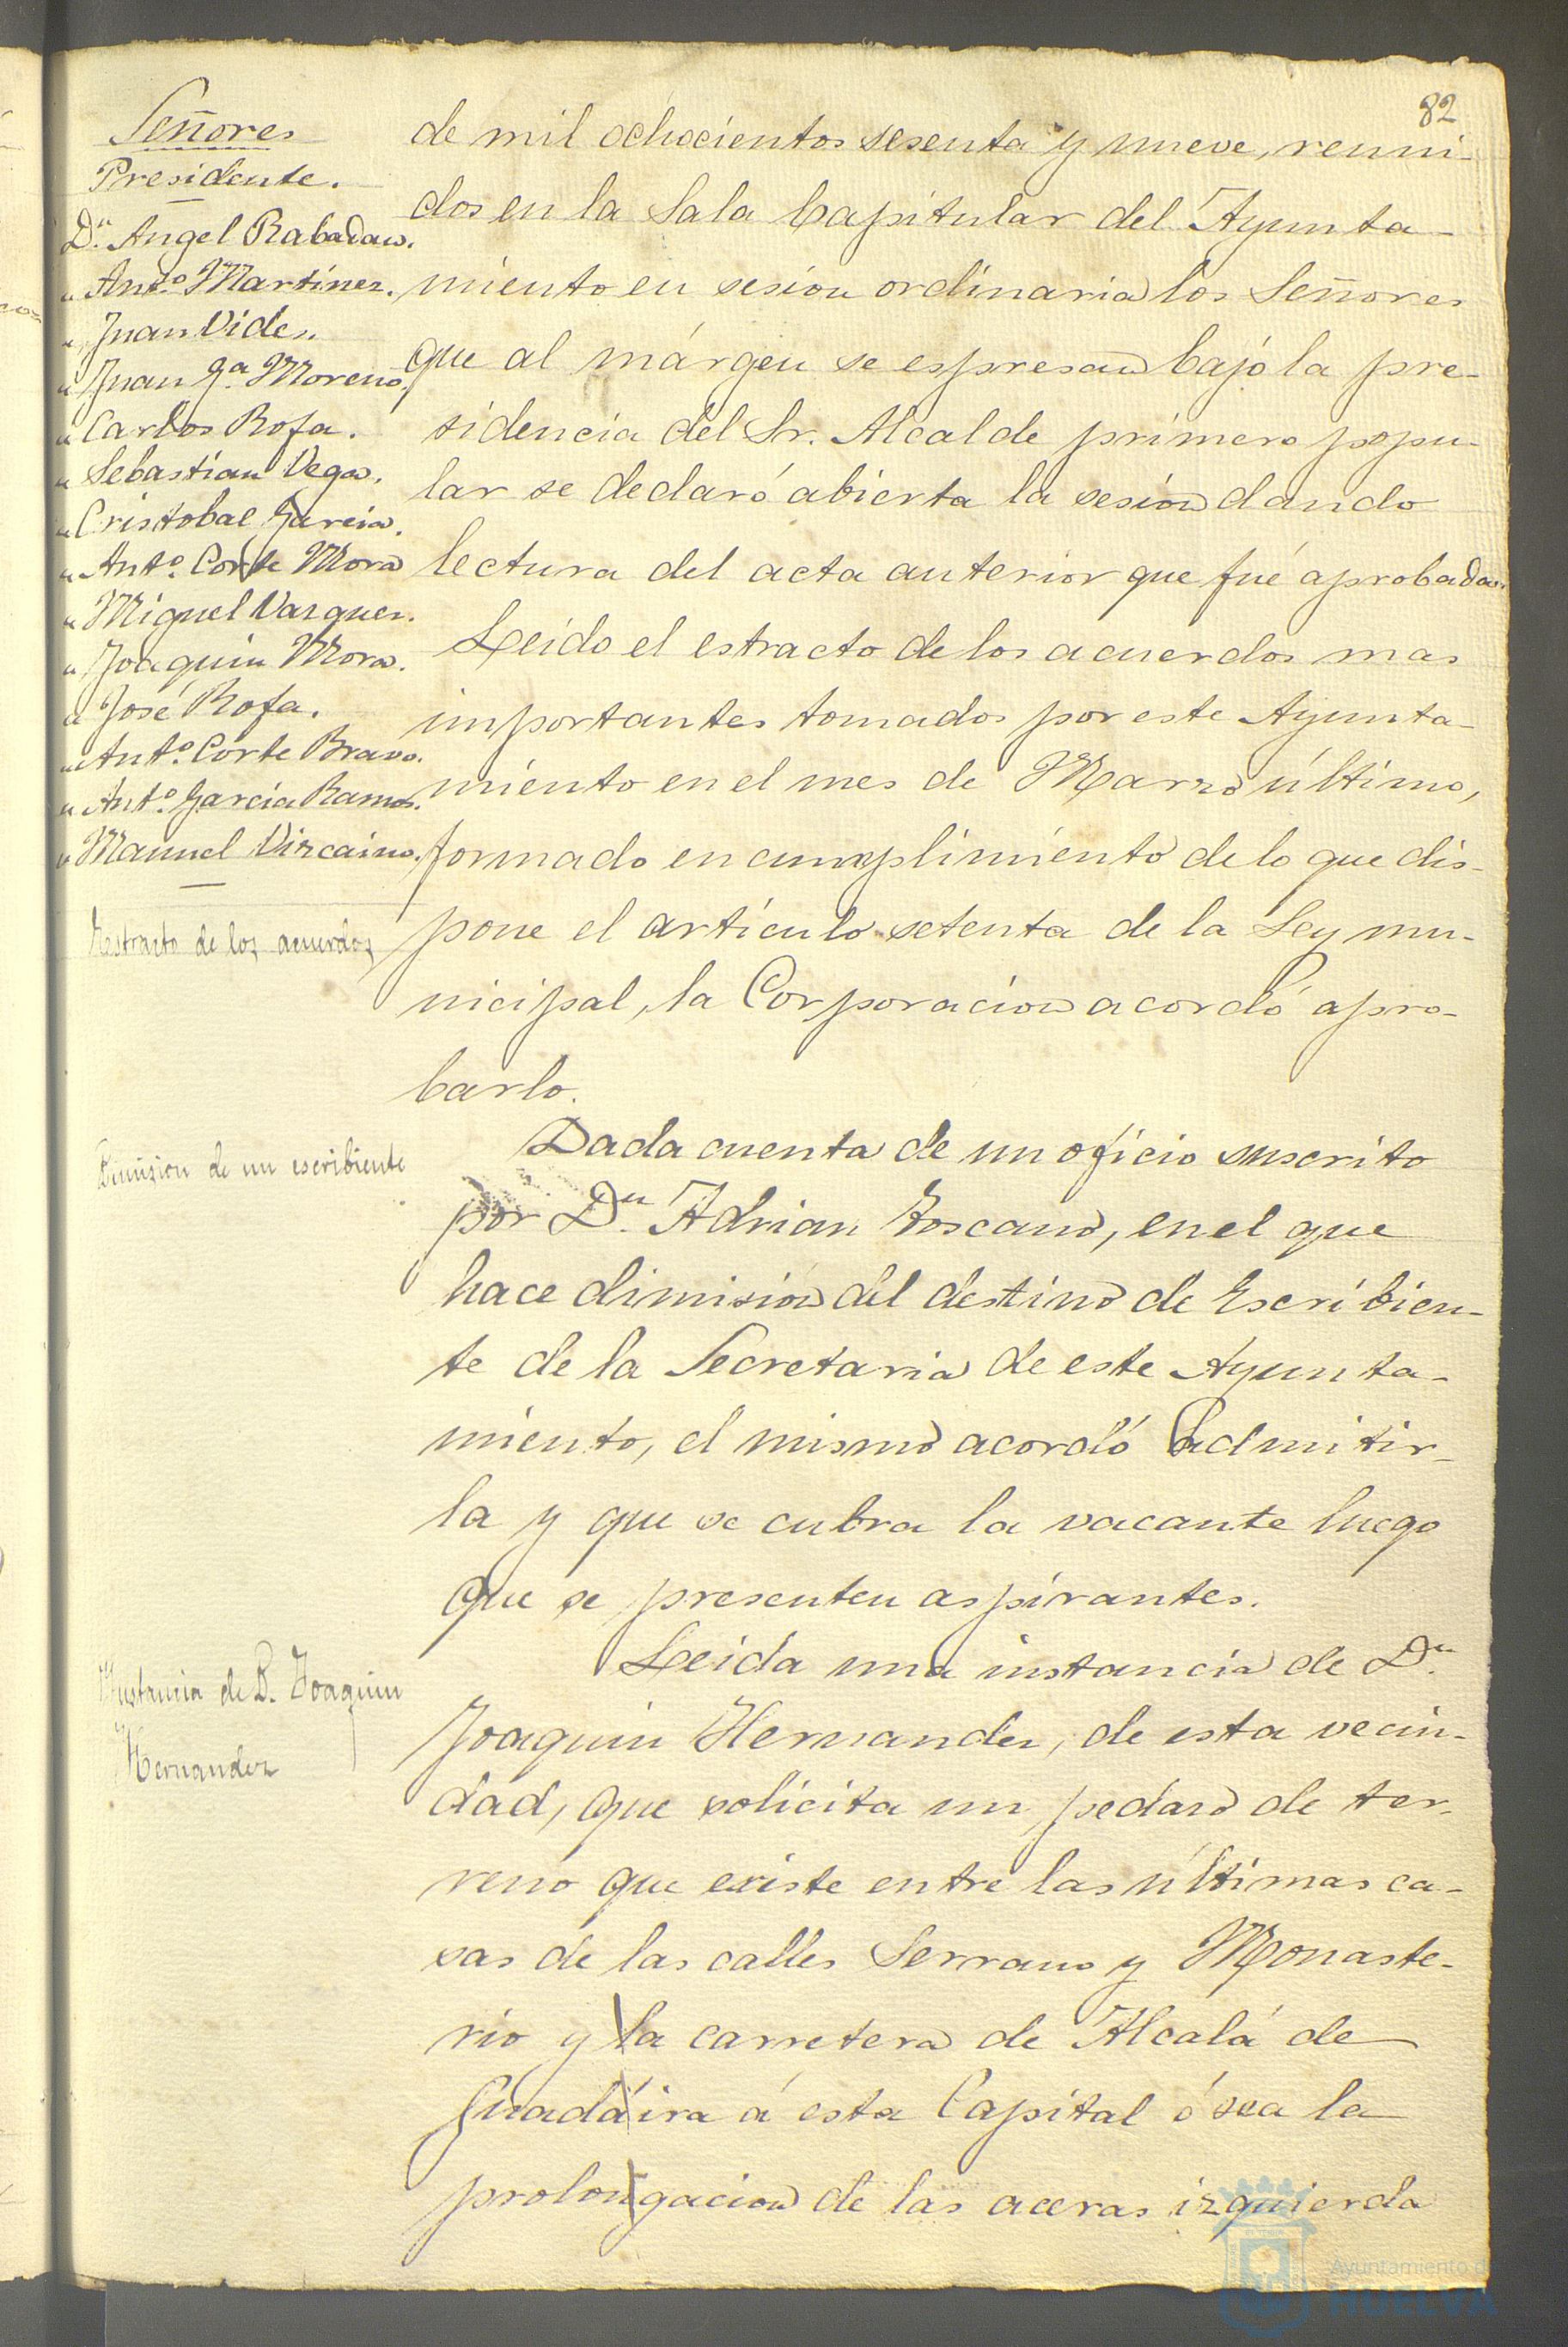 82
Señores
Presidente.
Dn. Angel Rabadan.
" Anto. Martinez.
" Juan Vides.
" Juan Ga. Moreno.
" Carlos Rofa.
" Sebastian Vega.
" Cristobal Garcia.
" Anto. Corte Mora
" Miguel Vazquez.
" Joaquin Mora.
" José Rofa.
" Anto. Corte Bravo.
" Anto. Garcia Ramos.
" Manuel Vizcaino.
de mil ochocientos sesenta y nueve, reuni-
dos en la Sala Capitular del Ayunta-
miento en sesion ordinaria los Señores
que al márgen se espresan bajo la pre-
sidencia del Sr. Alcalde primero popu-
lar se declaró abierta la sesion dando
lectura del acta anterior que fué aprobada.
Estracto de los acuerdos
Leido el estracto de los acuerdos mas
importantes tomados por este Ayunta-
miento en el mes de Marzo último,
formado en cumplimiento de lo que dis-
pone el artículo setenta de la Ley mu-
nicipal, la Corporacion acordó apro-
barlo.
Dimision de un escribiente
Dada cuenta de un oficio suscrito
por Dn. Adrian Toscano, en el que
hace dimision del destino de Escribien-
te de la Secretaria de este Ayunta-
miento, el mismo acordó admitir-
la y que se cubra la vacante luego
que se presenten aspirantes.
Instancia de D. Joaquin
Hernandez
Leida una instancia de Dn.
Joaquin Hernandez, de esta vecin-
dad, que solicita un pedazo de ter-
reno que existe entre las últimas ca-
sas de las calles Serrano y Monaste-
rio y la carretera de Alcalá de
Guadaira á esta Capital ó sea la
prolongacion de las aceras izquierda
Ayuntamiento de
HUELVA